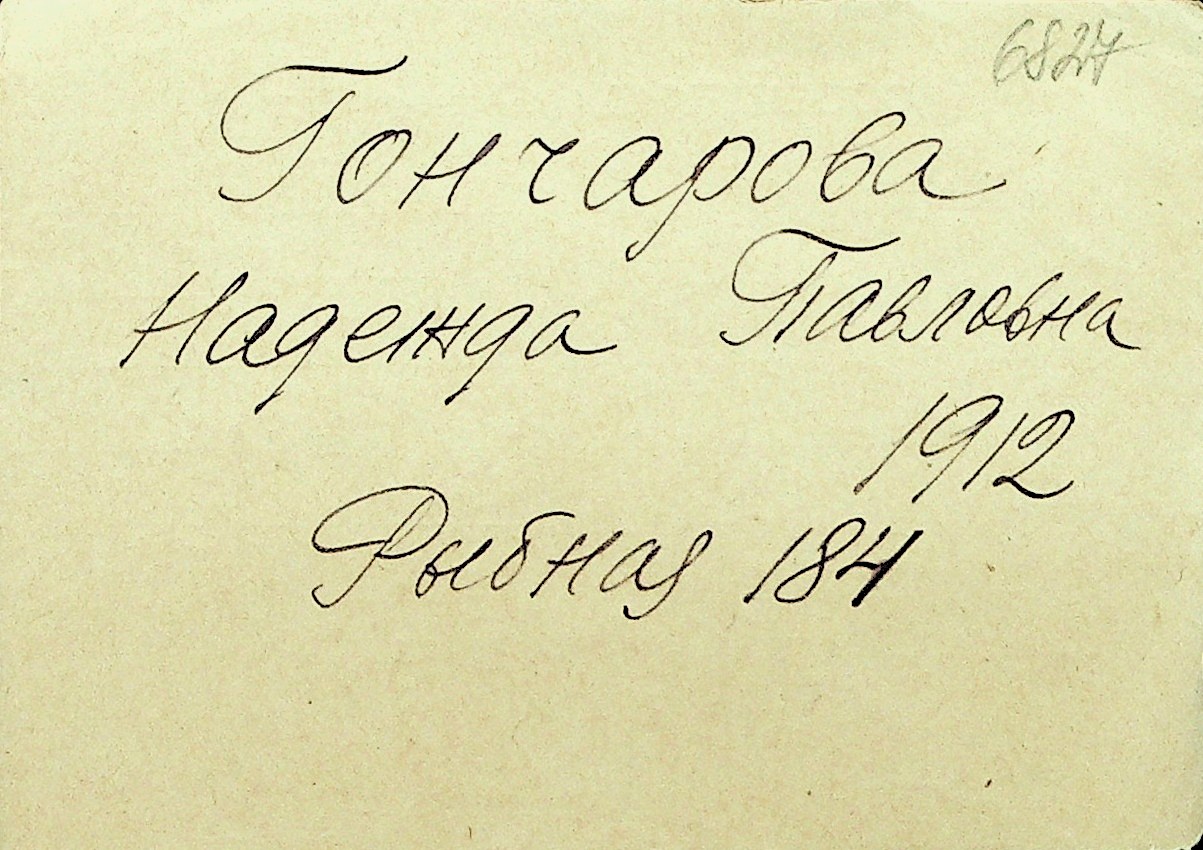 6827
Гончарова
Надежда Павловна
1912
Рыбная 184